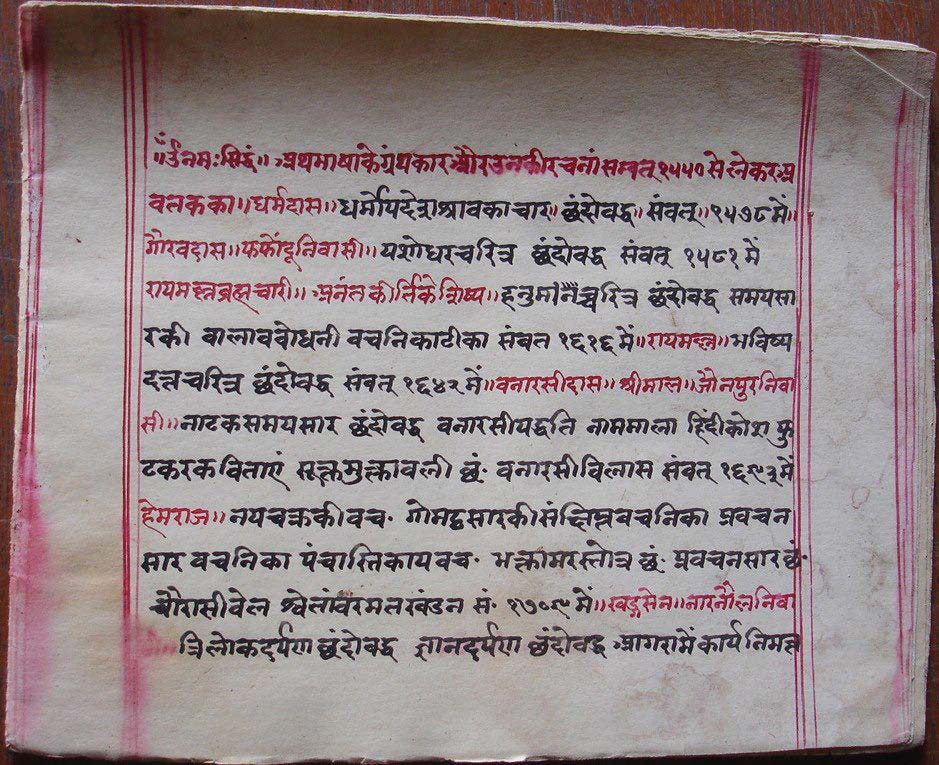 ॥ॐनमःसिद्धं॥ अथभाषाकेग्रंथकारऔरउनकीरचनांसम्वत्१५५०सेलेकरअ
वतकका॥धर्मदास॥धर्मोपदेशश्रावकाचार॥छंदोवद्ध॥संवत्॥१५७८में॥
गौरवदास॥फफोंदूनिवासी॥यशोधरचरित्र छंदोवद्ध संवत् १५८१में
रायमल्लब्रह्मचारी॥अनंतकीर्त्तिकेशिष्य॥हनुमांनचरित्र छंदोवद्ध समयसा
रकी वालाववोधनी वचनिकाटीका संवत १६१६में॥रायमल्ल॥भविष्य
दत्तचरित्र छंदोवद्ध संवत् १६४२में॥वनारसीदास॥श्रीमाल॥जौनपुरनिवा
सी॥नाटकसमयसार छंदोवद्ध वनारसीपद्धति नाममाला हिंदीकोश फु
टकरकविताएं सूक्तमुक्तावली छं॰ वनारसीविलास संवत् १६९३में
हेमराज॥नयचक्रकीवच॰ गोमट्टसारकीसंक्षिप्तवचनिका प्रवचन
सार वचनिका पंचास्तिकायवच॰ भक्तामरस्तोत्र छं॰ प्रवचनसार छं॰
चौरासीवोल श्वेतांवरमतखंडन सं॰ १७०९में॥खड्गसेन॥नारनौलनिवा
त्रिलोकदर्पण छंदोवद्ध ज्ञानदर्पण छंदोवद्ध आगरामेंकार्यनिमत्त